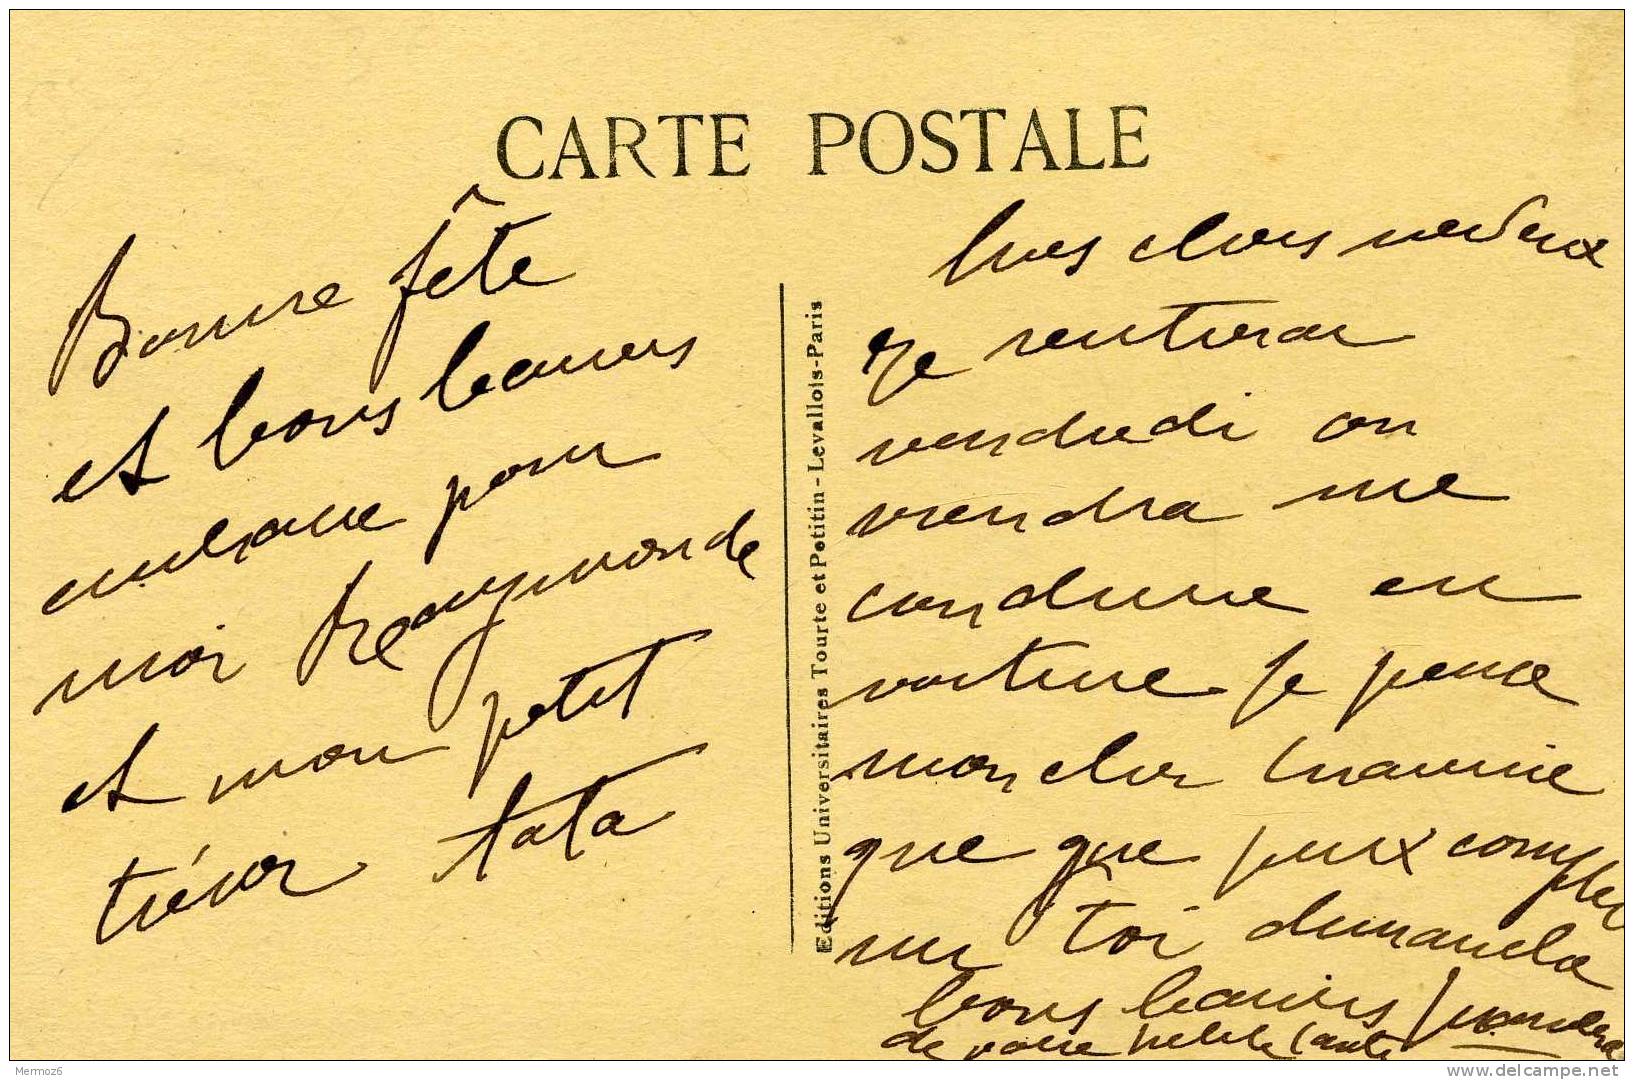 CARTE POSTALE
Bonne fête
et bons baisers
embrasse pour
moi Reaymonde
et mon petit
trésor tata
Mes chers neveux
Je rentrerai
vendredi on
viendra me
conduire en
voiture je pense
mon cher
que que peux compter
toi dimanche
bons baisers
de votre tante
Editions Universitaires Tourte et Petitin - Levallois-Paris
Mermoz26
www.delcampe.net